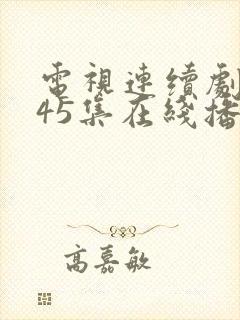 電視連續劇
45集在綫播
高嘉敏